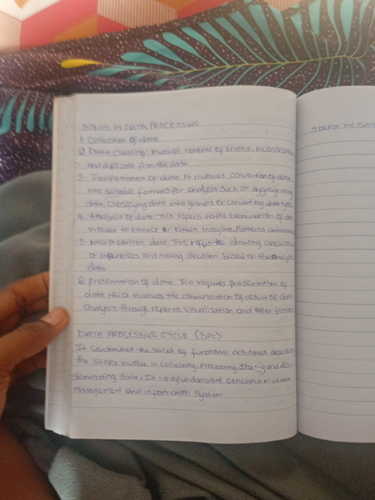 STEPS IN DATA PROCESSING
1. Collection of data
2. Data cleaning: Involves removal of errors,
and duplicate from the data
3. Transformation of data. It involves convertion of data
into suitable formats for analysis such as aggregating
data, classifying data into groups or converting data
4. Analysis of data. This refers to the examination of data
in order to extract or obtain insights, patterns and
5. Interpretation data. This refers to drawing
or inferences and making decision based on the
data
6. Presentation of data. This requires presentation of
data which involves the communication of result of data
analysis through reports, visualization and other
DATA PROCESSING CYCLE (DPC)
It constitutes the series of functional activities describing
the steps involve in collecting, processing, storing and
seminating data. It is a fundamental concepts in
management and information system
STEPS IN DAT